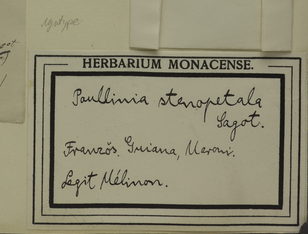 HERBARIUM MONACENSE.
Paullinia stenopetala
Sagot.
Französ. Guiana, Maroni.
Legit Mélinon.